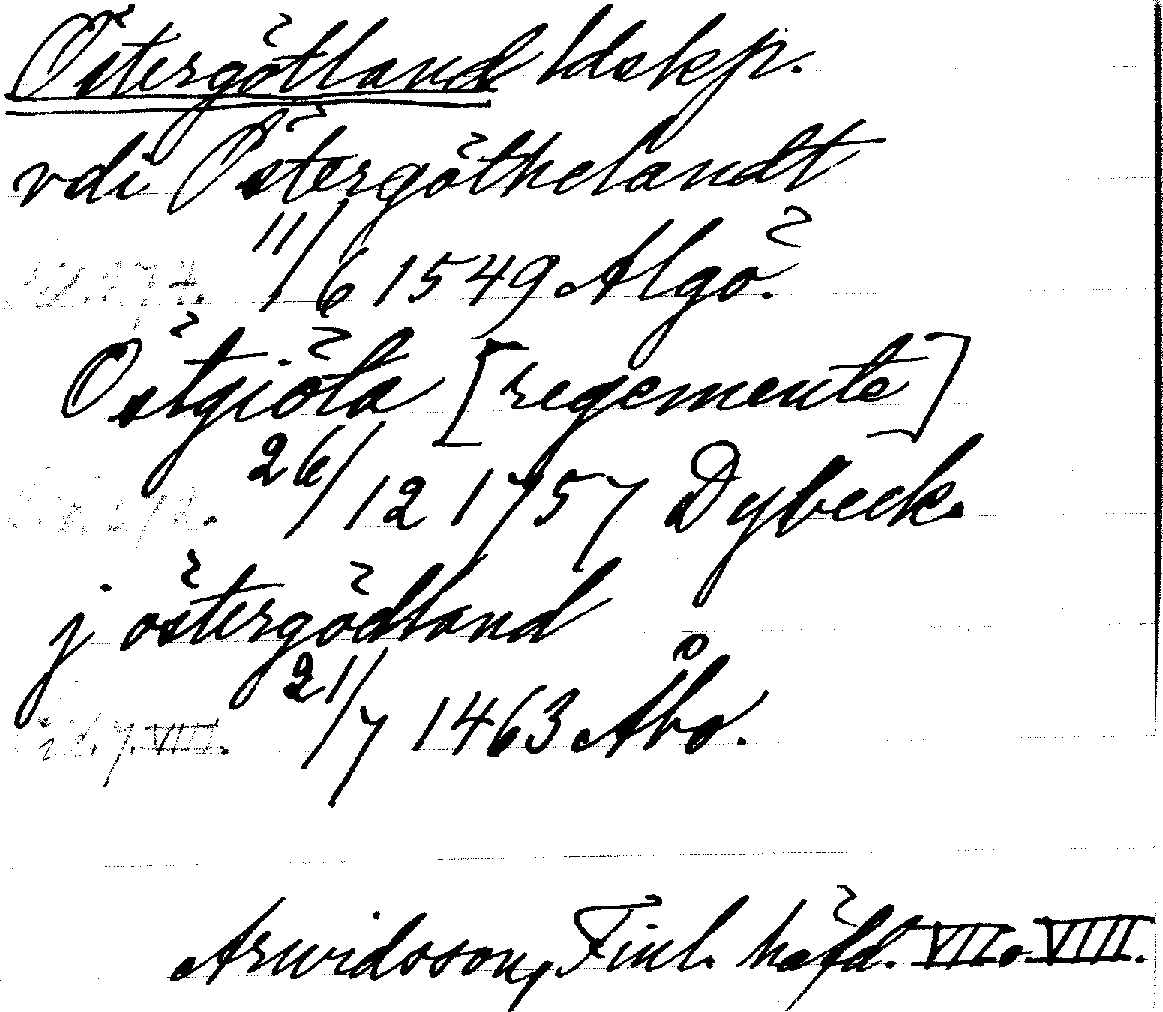 Östergötland ldskp.
vdi Östergöthelandt
11/6 1549 Algö.
Östgiöta [regemente]
26/12 1757 Dybeck.
j östergödland
21/7 1463 Åbo.
Arwidsson, Finl. häfd. VII o VIII.